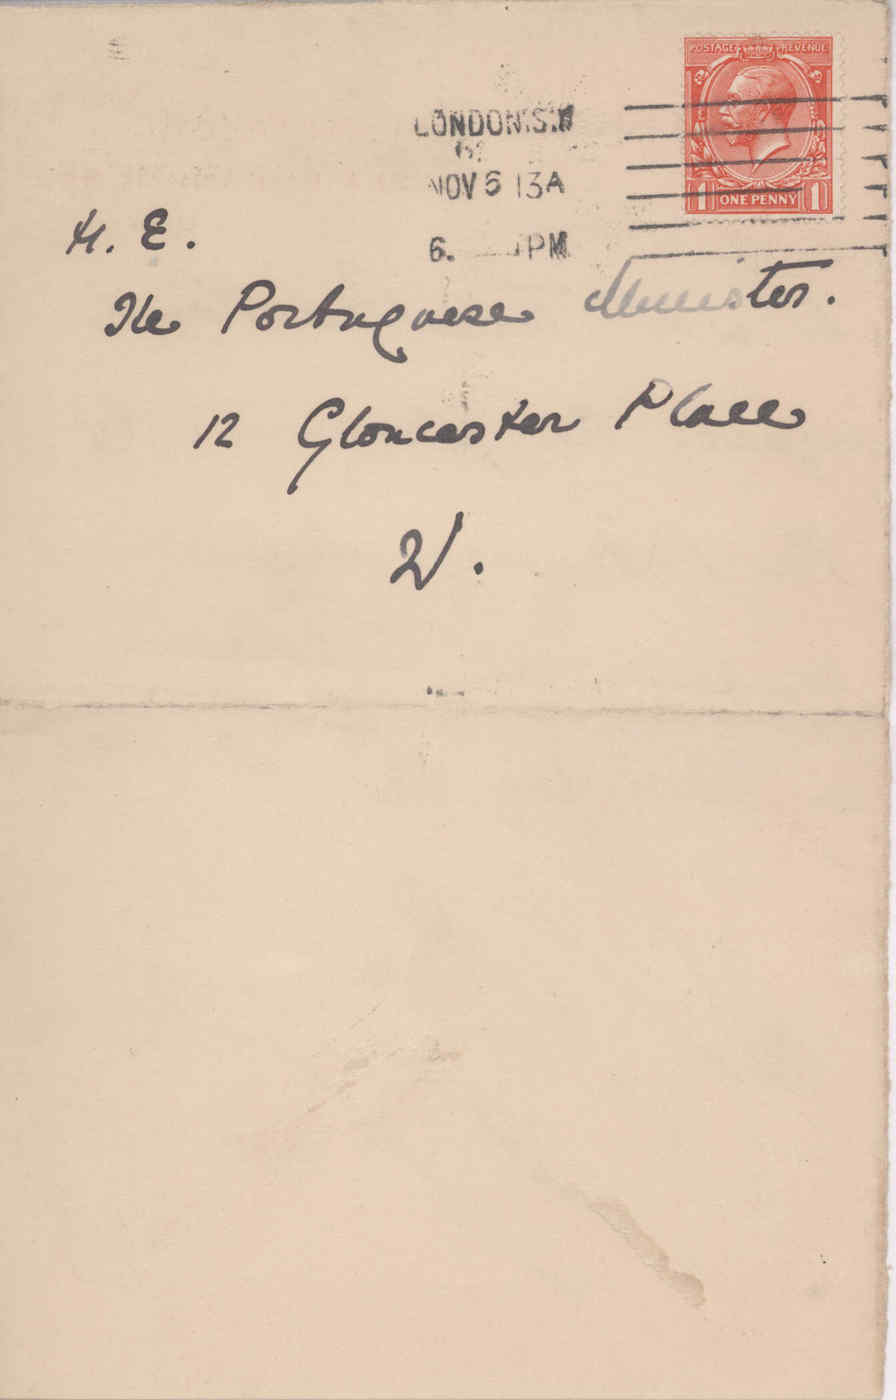 POSTAGE REVENUE
1 ONE PENNY 1
LONDON.S.W
NOV 6 13A
6. PM
H. E.
The Portuguese Minister.
12 Gloucester Place
W.